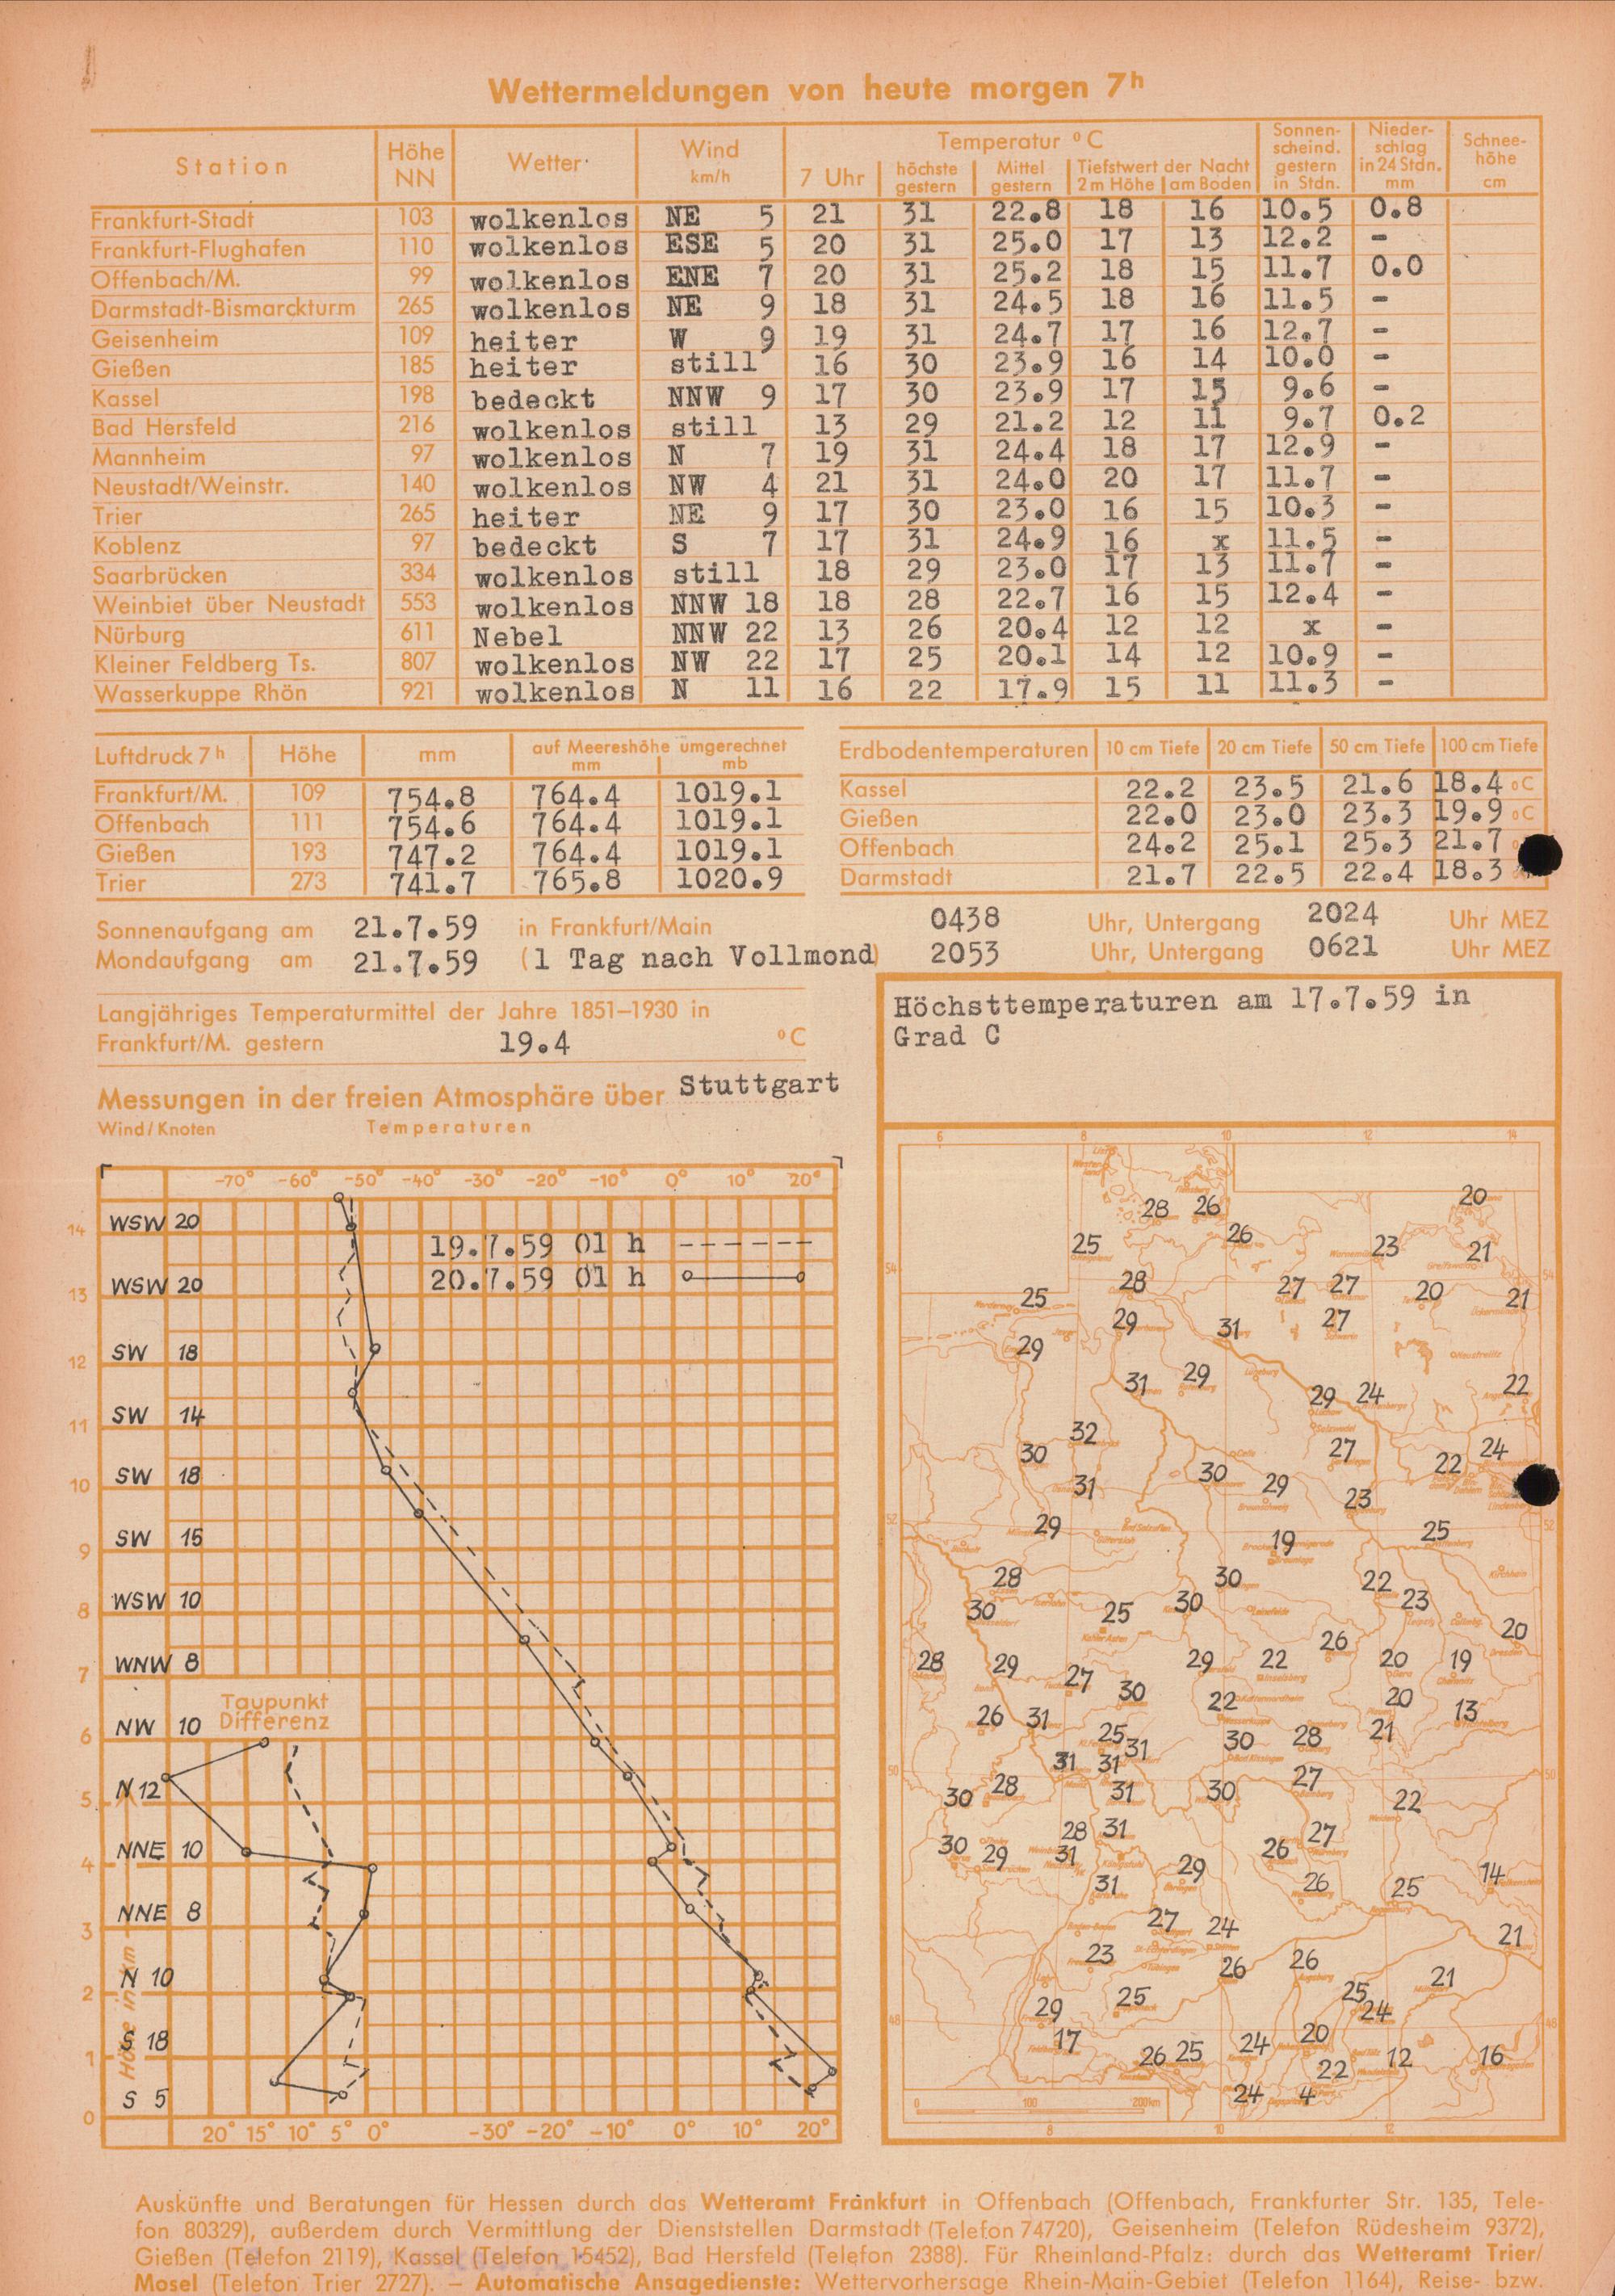 Wettermeldungen von heute morgen 7h
Station Höhe NN Wetter Wind km/h Temperatur °C Sonnenscheind. gestern in Stdn. Niederschlag in 24 Stdn. mm Schneehöhe cm
7 Uhr höchste gestern Mittel gestern Tiefstwert der Nacht 2m Höhe am Boden
Frankfurt-Stadt 103 wolkenlos NE 5 21 31 22.8 18 16 10.5 0.8
Frankfurt-Flughafen 110 wolkenlos ESE 5 20 31 25.0 17 13 12.2 -
Offenbach/M. 99 wolkenlos ENE 7 20 31 25.2 18 15 11.7 0.0
Darmstadt-Bismarckturm 265 wolkenlos NE 9 18 31 24.5 18 16 11.5 -
Geisenheim 109 heiter W 9 19 31 24.7 17 16 12.7 -
Gießen 185 heiter still 16 30 23.9 16 14 10.0 -
Kassel 198 bedeckt NNW 9 17 30 23.9 17 15 9.6 -
Bad Hersfeld 216 wolkenlos still 13 29 21.2 12 11 9.7 0.2
Mannheim 97 wolkenlos N 7 19 31 24.4 18 17 12.9 -
Neustadt/Weinstr. 140 wolkenlos NW 4 21 31 24.0 20 17 11.7 -
Trier 265 heiter NE 9 17 30 23.0 16 15 10.3 -
Koblenz 97 bedeckt S 7 17 31 24.9 16 x 11.5 -
Saarbrücken 334 wolkenlos still 18 29 23.0 17 13 11.7 -
Weinbiet über Neustadt 553 wolkenlos NNW 18 18 28 22.7 16 15 12.4 -
Nürburg 611 Nebel NNW 22 13 26 20.4 12 12 x -
Kleiner Feldberg Ts. 807 wolkenlos NW 22 17 25 20.1 14 12 10.9 -
Wasserkuppe Rhön 921 wolkenlos N 11 16 22 17.9 15 11 11.3 -
Luftdruck 7h Höhe mm auf Meereshöhe umgerechnet mm mb
Frankfurt/M. 109 754.8 764.4 1019.1
Offenbach 111 754.6 764.4 1019.1
Gießen 193 747.2 764.4 1019.1
Trier 273 741.7 765.8 1020.9
Erdbodentemperaturen 10 cm Tiefe 20 cm Tiefe 50 cm Tiefe 100 cm Tiefe
Kassel 22.2 23.5 21.6 18.4 °C
Gießen 22.0 23.0 23.3 19.9 °C
Offenbach 24.2 25.1 25.3 21.7
Darmstadt 21.7 22.5 22.4 18.3
Sonnenaufgang am 21.7.59 in Frankfurt/Main 0438 Uhr, Untergang 2024 Uhr MEZ
Mondaufgang am 21.7.59 (1 Tag nach Vollmond) 2053 Uhr, Untergang 0621 Uhr MEZ
Langjähriges Temperaturmittel der Jahre 1851–1930 in
Frankfurt/M. gestern 19.4 °C
Messungen in der freien Atmosphäre über Stuttgart
Wind/Knoten Temperaturen
-70° -60° -50° -40° -30° -20° -10° 0° 10° 20°
14 WSW 20
19.7.59 01 h
20.7.59 01 h
13 WSW 20
12 SW 18
11 SW 14
10 SW 18
9 SW 15
8 WSW 10
7 WNW 8
Taupunkt
Differenz
6 NW 10
5 N 12
4 NNE 10
3 NNE 8
2 N 10
1 S 18
0 S 5
Höhe in km
20° 15° 10° 5° 0° -30° -20° -10° 0° 10° 20°
Höchsttemperaturen am 17.7.59 in
Grad C
6 8 10 12 14
20
28 26
25 26 23 21
54 28 27 27 20 21 54
25
29 31 27
29
31 29 29 24 22
32
30 27 22 24
31 30 29 23
52 29 19 25 52
28 30 22 23
30 25 30
26 20
28 29 27 29 22 20 19
30 22 20 13
26 31 25 31 30 28 21
31 31
50 30 28 31 30 27 22 50
28 31 27
30 29 31 29 26 14
31 26 25
27 24 21
23 26 26 21
48 29 25 25 24 48
17 26 25 24 20 22 12 16
24 4
0 100 200km
8 10 12
Auskünfte und Beratungen für Hessen durch das Wetteramt Frankfurt in Offenbach (Offenbach, Frankfurter Str. 135, Tele-
fon 80329), außerdem durch Vermittlung der Dienststellen Darmstadt (Telefon 74720), Geisenheim (Telefon Rüdesheim 9372),
Gießen (Telefon 2119), Kassel (Telefon 15452), Bad Hersfeld (Telefon 2388). Für Rheinland-Pfalz: durch das Wetteramt Trier/
Mosel (Telefon Trier 2727). — Automatische Ansagedienste: Wettervorhersage Rhein-Main-Gebiet (Telefon 1164), Reise- bzw.